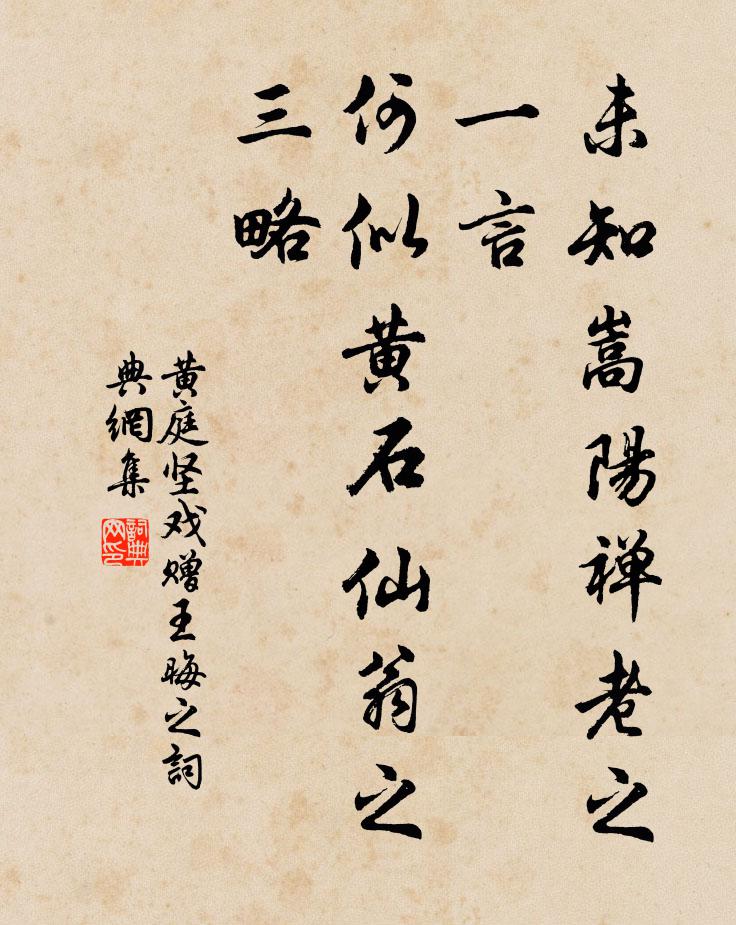 未知嵩陽禅老之
一言
何似黄石仙翁之
三略
黄庭坚戏赠王晦之詞
典網集
詞典
网印